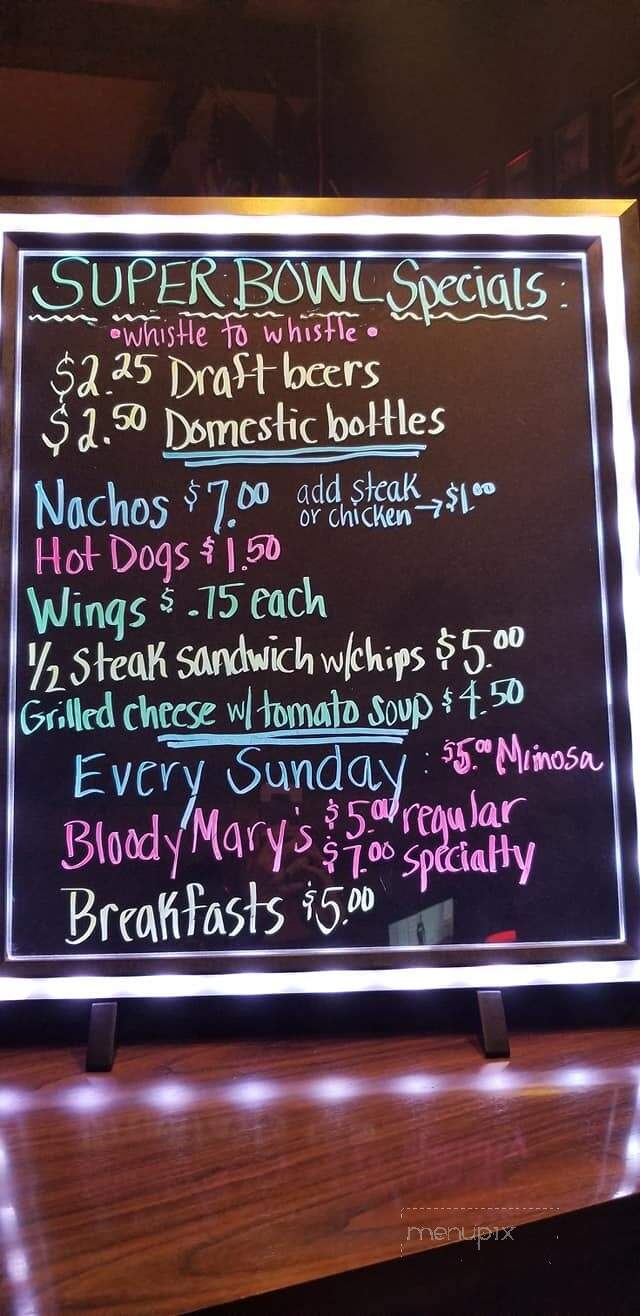 SUPER BOWL Specials:
•whistle to whistle•
$2.25 Draft beers
$2.50 Domestic bottles
Nachos $7.00 add steak
or chicken → $1.00
Hot Dogs $1.50
Wings $.75 each
1/2 Steak sandwich w/chips $5.00
Grilled cheese w/ tomato soup $4.50
Every Sunday: $5.00 Mimosa
Bloody Mary's $5.00 regular
$7.00 specialty
Breakfasts $5.00
menupix